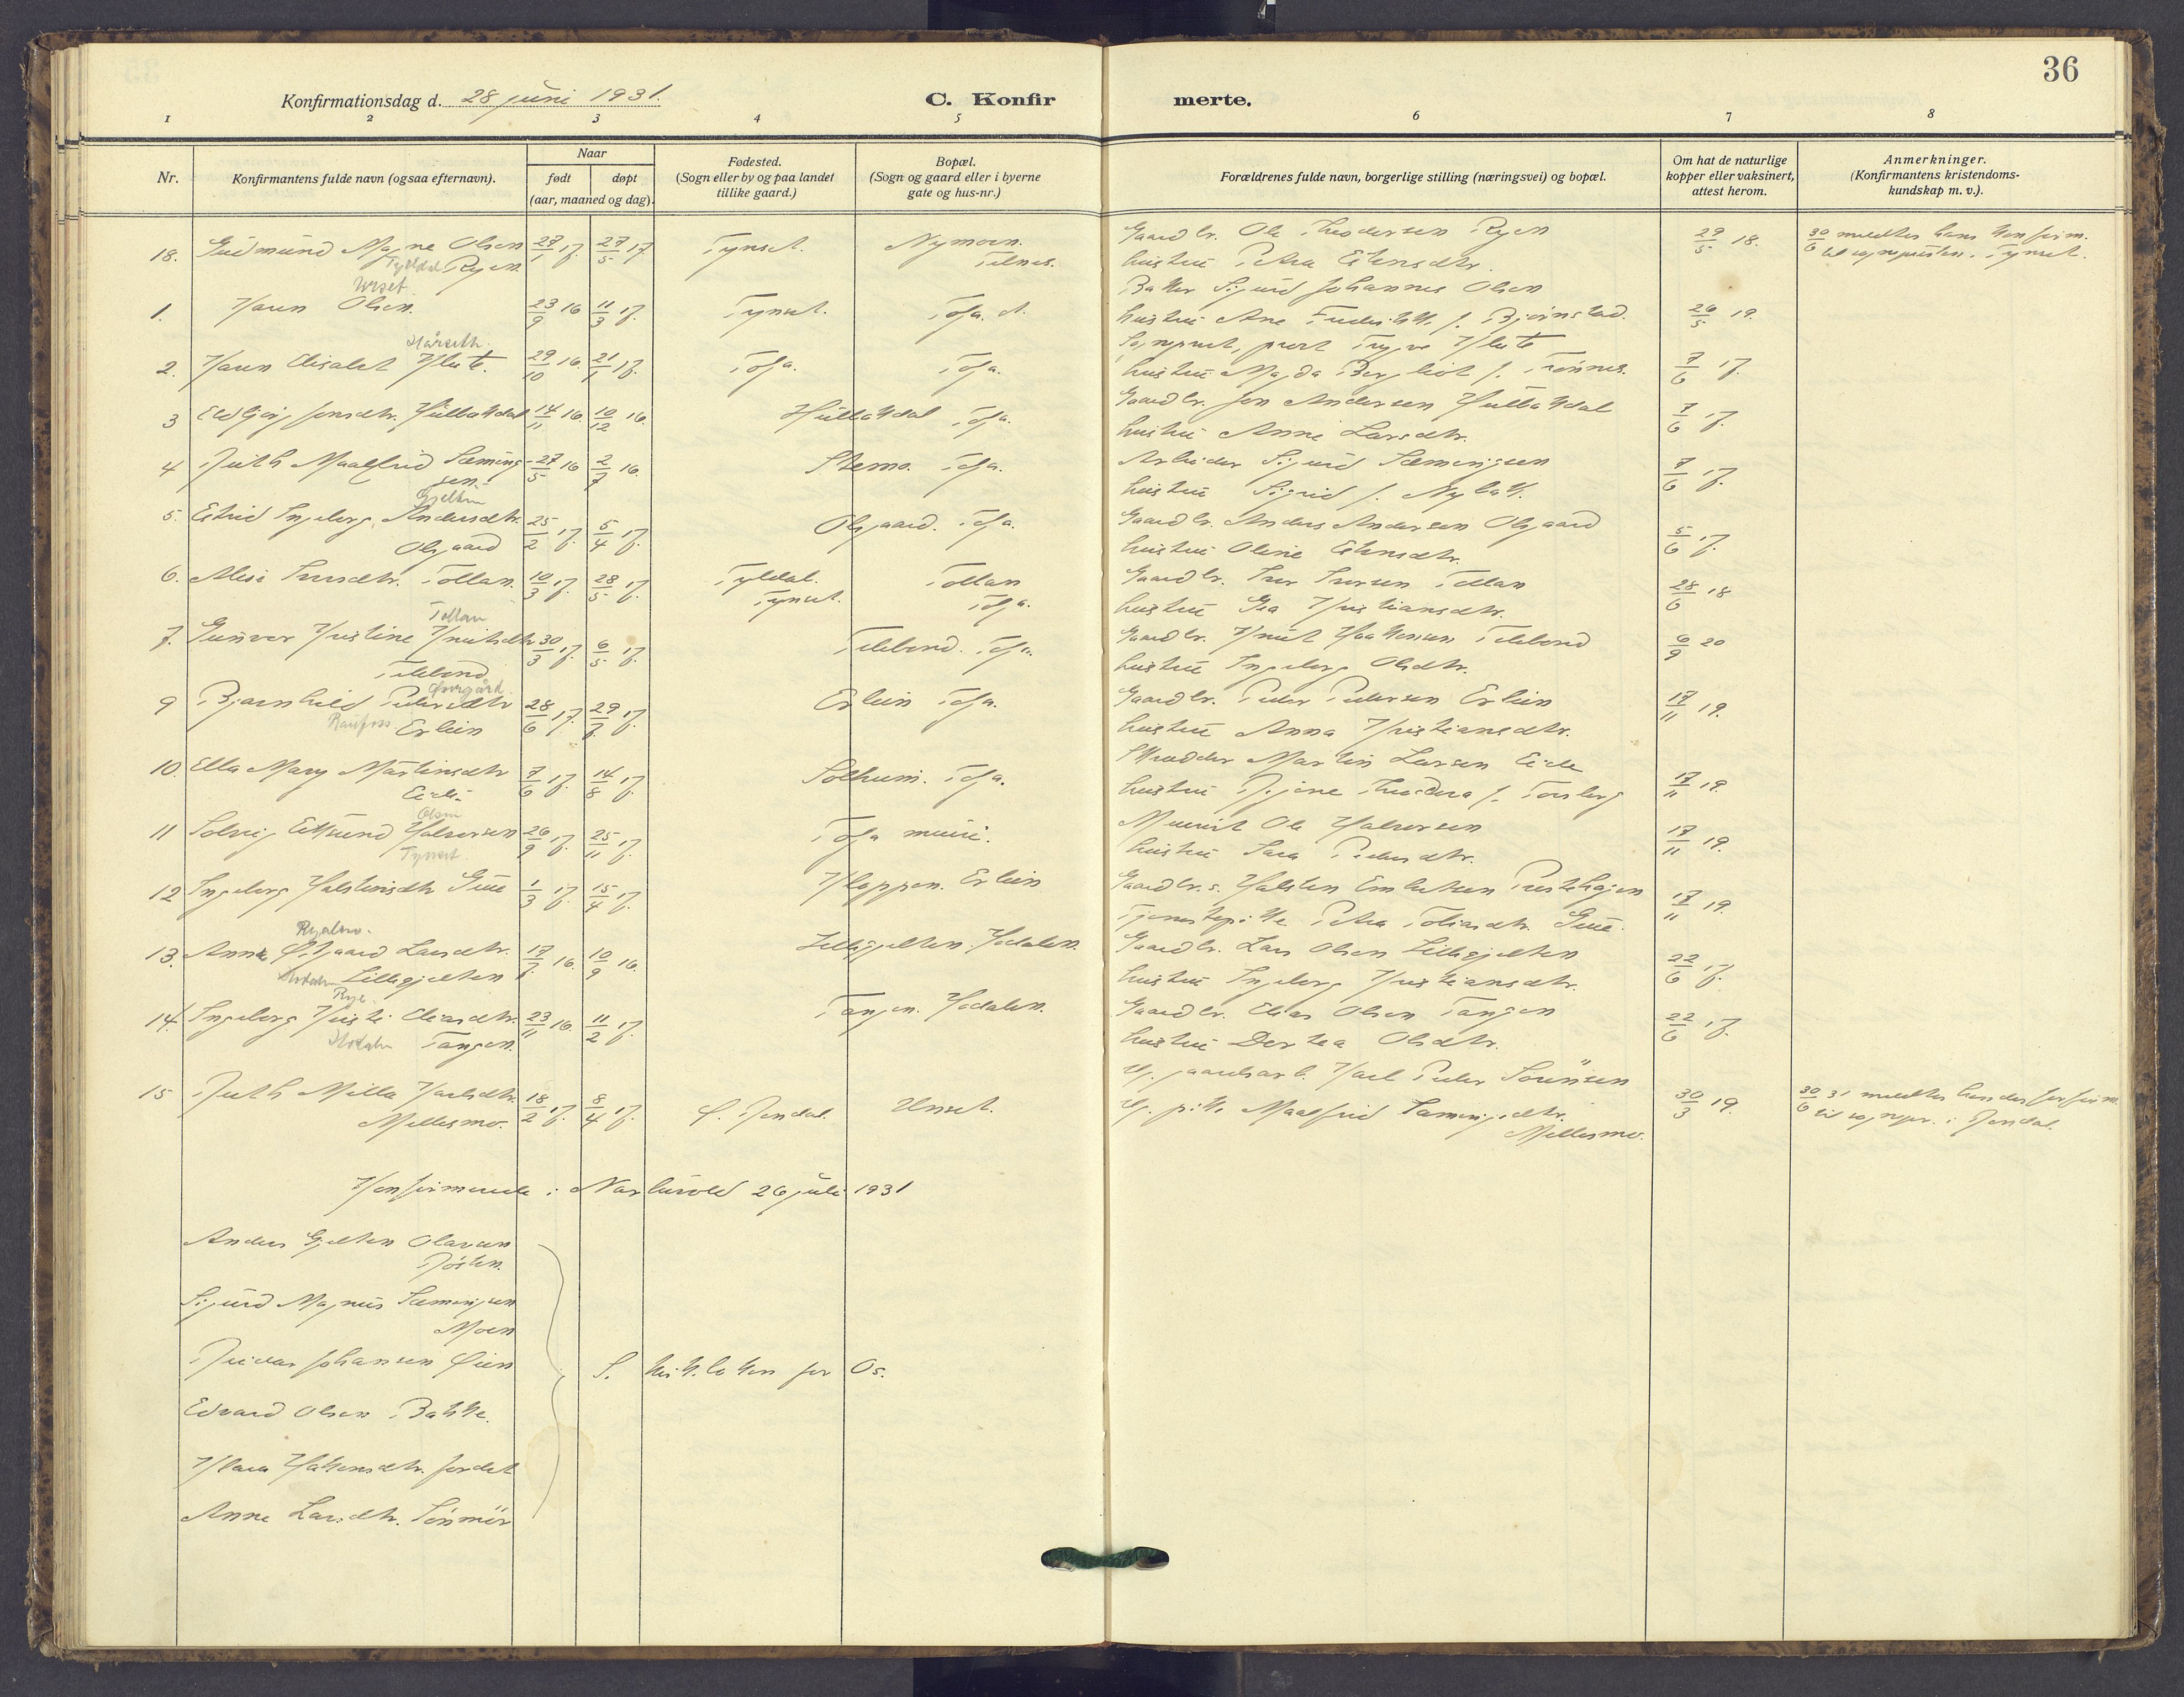 36
Konfirmationsdag d. 28 juni 1931.
C. Konfirmerte.
1 2 3 4 5 6 7 8
Nr.
Konfirmantens fulde navn (ogsaa efternavn).
Naar
født døpt
(aar, maaned og dag).
Fødested.
(Sogn eller by og paa landet
tillike gaard.)
Bopæl.
(Sogn og gaard eller i byerne
gate og hus-nr.)
Forældrenes fulde navn, borgerlige stilling (næringsvei) og bopæl.
Om hat de naturlige
kopper eller vaksinert,
attest herom.
Anmerkninger.
(Konfirmantens kristendoms-
kundskap m. v.).
18. Gudmund Magne Olsen 27/1 17. 27/5 17. Tynset. Nymoen. Gaardbr. Ole Theodorsen Ryen 29/5 18. 30/6 meldtes hans konfirm.
Tylldal Ryen Telnes. hustru Petra Estensdtr. til sognepresten i Tynset.
Urset.
1. Karen Olsen. 23/9 16 11/3 17. Tynset. Tolga st. Baker Sigurd Johannes Olsen 26/5 19.
hustru Ane Fredrikke f. Bjørnstad.
Hårseth
2. Karen Elisabet Klute. 29/10 16. 21/1 17. Tolga. Tolga. Sogneprest, prost Trygve Klute 7/6 17.
hustru Magda Bergliot f. Trønnes.
3 Eldbjørg Jonsdtr. Hullakdal 14/11 16. 10/12 16. Hullakdal Tolga. Gaardbr. Jon Andersen Hullakdal 7/6 17.
hustru Anne Larsdtr.
4 Ruth Maalfrid Sæming- 27/5 16 2/7 16. Stemo. Tolga. Arbeider Sigurd Sæmingsen 7/6 17.
sen. hustru Sigrid f. Nybakk.
Gjelten
5. Estrid Ingeborg Andersdtr. 25/2 17. 5/4 17. Olsgaard. Tolga. Gaardbr. Anders Andersen Olsgaard 5/6 17.
Olsgaard hustru Oline Estensdtr.
6. Alise Iversdtr. Tollan. 10/3 17. 28/5 17. Tylldal. Tollan Gaardbr. Iver Iversen Tollan 28/6 18
Tynset. Tolga. hustru Gea Kristiansdtr.
Tollan
7. Gunvor Kristine Knutsdtr 30/3 17. 6/5 17. Telebond. Tolga. Gaardbr. Knut Haakonsen Telebond 6/9 20
Telebond hustru Ingeborg Olsdtr.
Øvergård
9 Bjarnhild Pedersdtr 28/6 17. 29/7 17. Erlien Tolga. Gaardbr. Peder Pedersen Erlien 17/11 19.
Raufoss. Erlien hustru Anna Kristiansdtr.
10. Ella Mary Martinsdtr 7/6 17. 14/8 17. Solheim. Tolga. Skrædder Martin Larsen Eide 17/11 19.
Eide. hustru Thodora f. Torsberg
Olsen
11 Solveig Halvorsen 26/9 17. 25/11 17. Tolga Murmst Ole Halvorsen 17/11 19.
Tynset. hustru Sara Pedersdtr.
12 Ingeborg Halstensdtr 1/3 17. 15/4 17. Kloppen. Erlien Gaardbr.s. Halsten Embretsen 17/11 19.
Tjenestepike Petra Tobiasdtr.
13. Anne Østgaard Larsdtr. 17/7 16. 10/9 16. Lillegjelten. Hodalen. Gaardbr. Lars Olsen Lillegjelten 22/6 17.
Hodalen Lillegjelten hustru Ingeborg Kristiansdtr.
Rye.
14. Ingeborg Kristi Eliasdtr. 23/11 16. 11/2 17. Tangen. Hodalen. Gaardbr. Elias Olsen Tangen 22/6 17.
Hodalen Tangen. hustru Dortea Olsdtr.
15 Ruth Milla Karlsdtr. 18/2 17. 8/4 17. Ø. Rendal. Unset. Ug. gaardsarb. Karl Peder Sørensen 30/3 19. 30/6 31 meldtes hendes konfirm.
Mellesmo. Ug. pike Maalfrid Sæmingsdtr. til sognepr. i Rendal.
Mellesmo.
Konfirmerede i Narbuvold 26 juli 1931
Anders Gjelten Olavsen
Røsten.
Sigurd Magnus Sæmingsen
Moen
Reidar Johansen Øien S. kirkeboken for Os.
Edvard Olsen Bakke.
Klara Haakonsdtr. Jordet
Anne Larsdtr. Sønmør